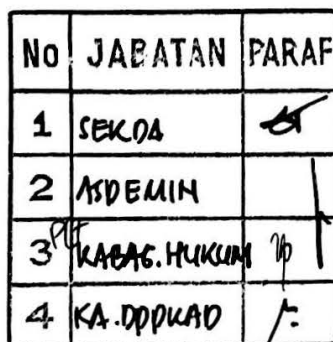 No JABATAN PARAF
1 SEKDA
2 ASDEMIN
3 Plt KABAG. HUKUM
4 KA. DPPKAD